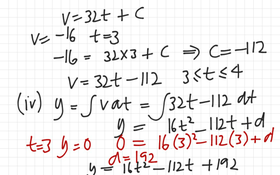 v = 32t + C
v = -16 t=3
-16 = 32×3 + C ⇒ C=-112
v = 32t - 112 3≤t≤4
(iv) y = ∫v dt = ∫32t-112 dt
y = 16t² - 112t + d
t=3 y=0 0 = 16(3)² - 112(3) + d
d = 192
y = 16t² - 112t + 192